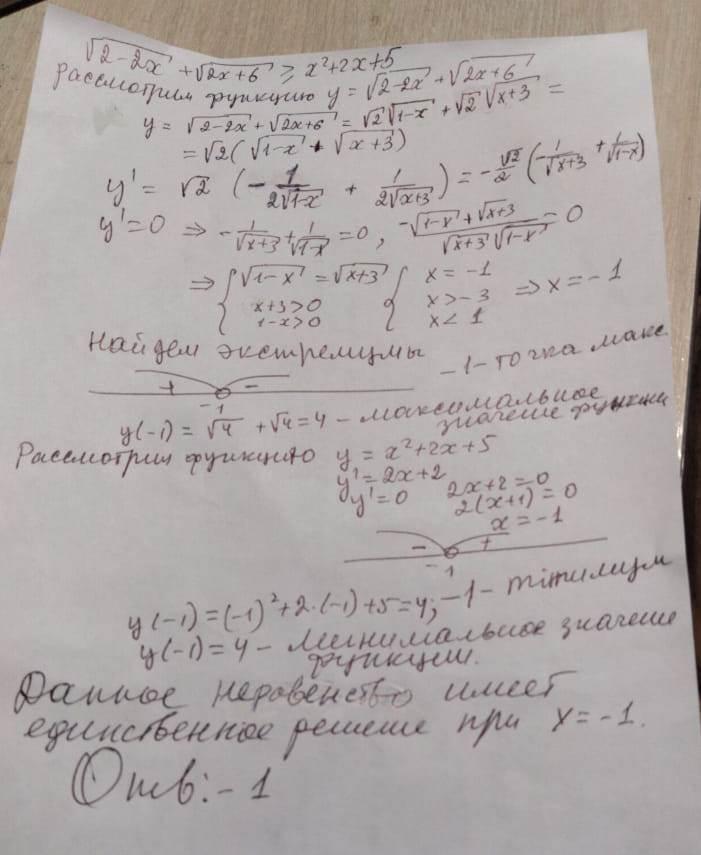 √2-2x + √2x+6 ≥ x²+2x+5
Рассмотрим функцию y = √2-2x + √2x+6
y = √2-2x + √2x+6 = √2 √1-x + √2 √x+3 =
= √2 ( √1-x + √x+3 )
y' = √2 ( - 1/2√1-x + 1/2√x+3 ) = - √2/2 ( - 1/√x+3 + 1/√1-x )
y' = 0 ⇒ - 1/√x+3 + 1/√1-x = 0 , -√1-x + √x+3 / √x+3 √1-x = 0
⇒ { √1-x = √x+3 { x = -1
x+3>0 x > -3 ⇒ x = -1
1-x>0 x < 1
Найдем экстремумы -1 - точка макс
+ -
-1
y(-1) = √4 + √4 = 4 - максимальное
значение функции
Рассмотрим функцию y = x²+2x+5
y' = 2x+2
y' = 0 2x+2 = 0
2(x+1) = 0
x = -1
- +
-1
y(-1) = (-1)² + 2·(-1) + 5 = 4; -1 -
y(-1) = 4 - минимальное значение
функции.
Данное неравенство имеет
единственное решение при x = -1.
Отв: -1